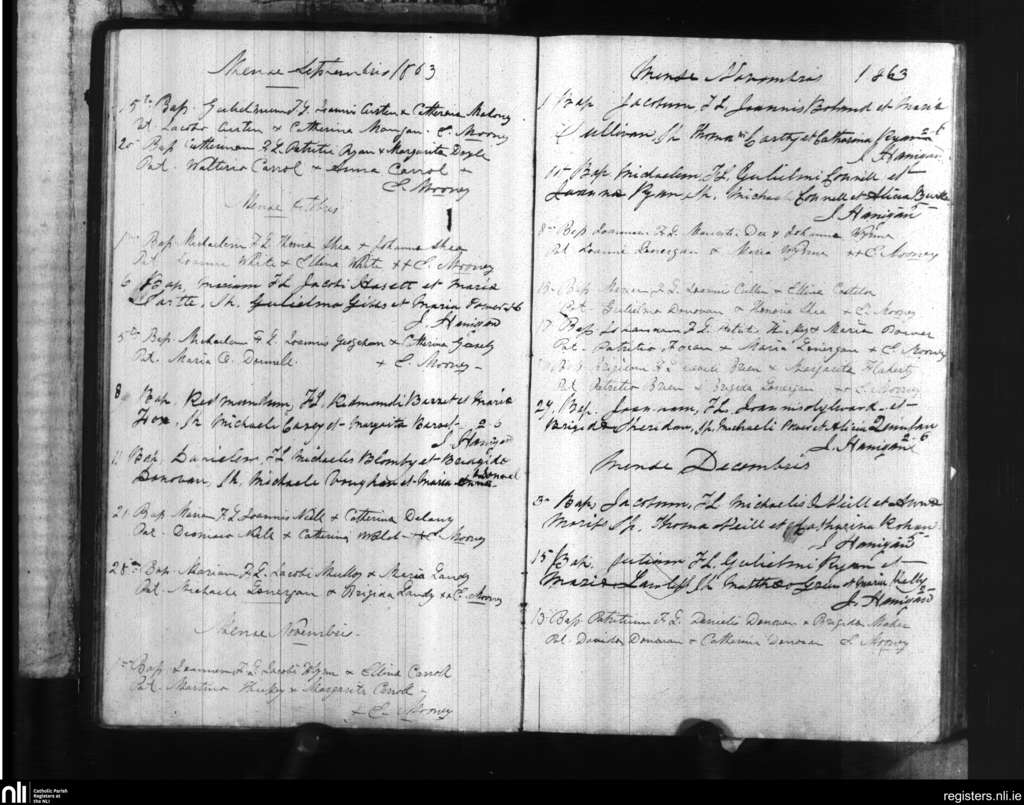 Mense Septembris 1863
15th Bap. Gulielmum F.L. Joannis Curten & Catherina Mahony
Pat. Jacobo Curten & Catherina Mangan. C. Mooney
20 Bap Catherinam F.L. Patritii Ryan & Margarita Doyle
Pat. Walterio Carrol & Anna Carrol +
C. Mooney
Mense Octobris
Bap. Michaelem F.L. Thoma Shea & Johanna Shea
Pat. Joanne White & Ellena White ++ C. Mooney
6 Bap. Mariam F.L. Jacobi Hasett et Maria
Sp. Gulielmo et Maria 2-6
J. Hanigan
Bap. Michaelem F.L. Joannis & Catherina
Pat. Maria O. Donnell + C. Mooney -
8 Bap. Redmundum, F.L. Redmundi Barret et Maria
Fox, Sp. Michaele Carey et Margarita Barret- 2-6
J. Hanigan
11 Bap. Danielem, F.L. Michaelis et Brigida
Donovan, Sp. Michaele Vaughan et Maria
21 Bap Mariam F.L. Joannis Neill & Catherina Delany
Pat. Neill & Catherina + C. Mooney
28th Bap. Mariam F.L. Jacobi & Maria Landy
Pat. Michaele Lonergan & Brigida Landy ++ C. Mooney
Mense Novembris.
Bap Joannem F.L. Jacobi Flynn & Ellena Carroll
Pat. Martino & Margarita Carroll -
+ C. Mooney
Mense Novembris 1863
1 Bap Jacobum, F.L. Joannis Boland et Maria
Sullivan, Sp. Thoma Carthy et Catharina Ryan 2-6
J. Hanigan
Bap. Michaelem, F.L. Gulielmi Connell et
Joanna Ryan, Sp. Michael Connell et Alicia Burke
J. Hanigan 5
8th Bap Joannem F.L. Dee & Johanna Wynne
Pat Joanne Lonergan & Maria Wynne ++ C. Mooney
Bap. F.L. Joannis Cullen & Ellena Costelo
Pat- Gulielmo Donovan & Honoria Shea + C. Mooney
17 Bap Johannam F.L. & Maria Power
Pat. Patritio Horan & Maria Lonergan + C. Mooney
Bap. F.L. Brien & Margarita Flaherty
Pat Patritio Brien & Brigida Lonergan ++ C. Mooney
29. Bap. Joannam, F.L. Joannis Aylward et
Brigida Sheridan, Sp. Michaeli Power et Alicia Quinlan
J. Hanigan 2-6
Mense Decembris
3rd Bap. Jacobum, F.L. Michaelis Neill et Anna
Sp. Thoma Neill et Catharina Kohan
J. Hanigan 5
15 Bap. F.L. Gulielmi Ryan et
Maria Lawless, Sp. Mattheo et Maria Kielly
J. Hanigan 5
13 Bap Patritium F.L. Danielis Donovan & Brigida Maher
Pat- Davido Donovan & Catherina Donovan C. Mooney
nli
Catholic Parish
Registers at
the NLI
registers.nli.ie